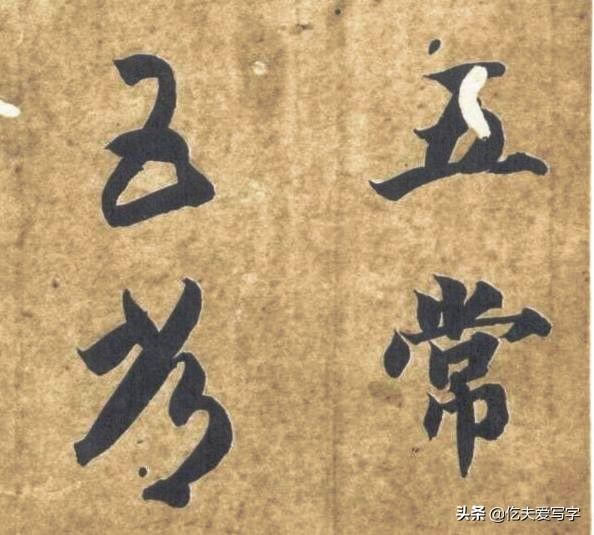 五常
五常
头条 @仡夫爱写字